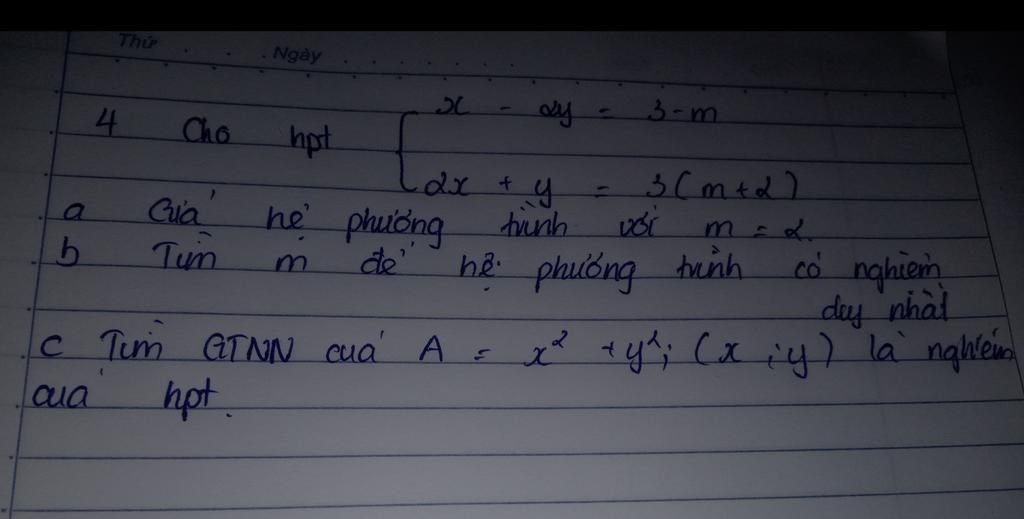 Thứ . . . . Ngày . . . . . . .
4 Cho hpt { x - 2y = 3-m
2x + y = 3(m+2)
a Giải hệ phương trình với m = 2.
b Tìm m để hệ phương trình có nghiệm
duy nhất
c Tìm GTNN của A = x² + y²; (x ; y) là nghiệm
của hpt.